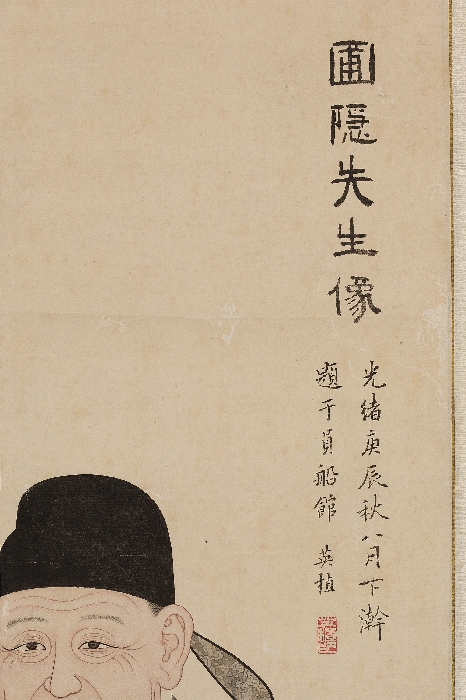 圃隱先生像
光緒庚辰秋八月下澣
題于員船館 英楨